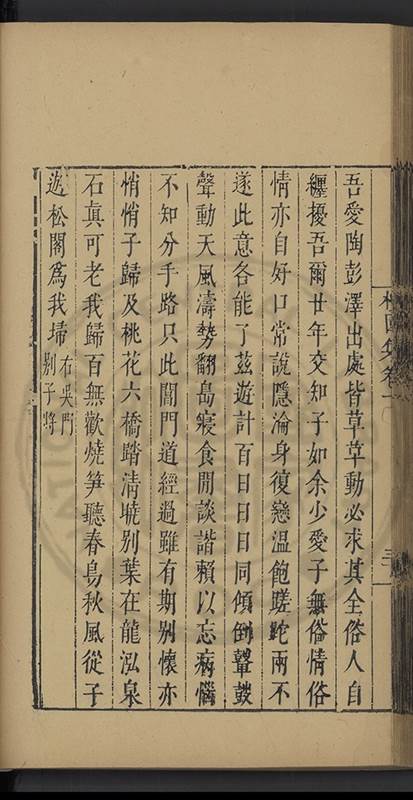 吾愛陶彭澤出處皆草草動必求其全俗人自
纒擾吾爾廿年交知子如余少愛子無俗情俗
情亦自好口常說隱淪身復戀溫飽蹉跎兩不
遂此意各能了茲遊計百日日日同傾倒鼙鼓
聲動天風濤勢翻島寢食閒談諧賴以忘病惱
不知分手路只此閶門道經過雖有期别懷亦
悄悄子歸及桃花六橋踏清曉别葉在龍泓泉
石真可老我歸百無歡燒笋聽春鳥秋風從子
遊松閣為我埽
右吳門
别子將